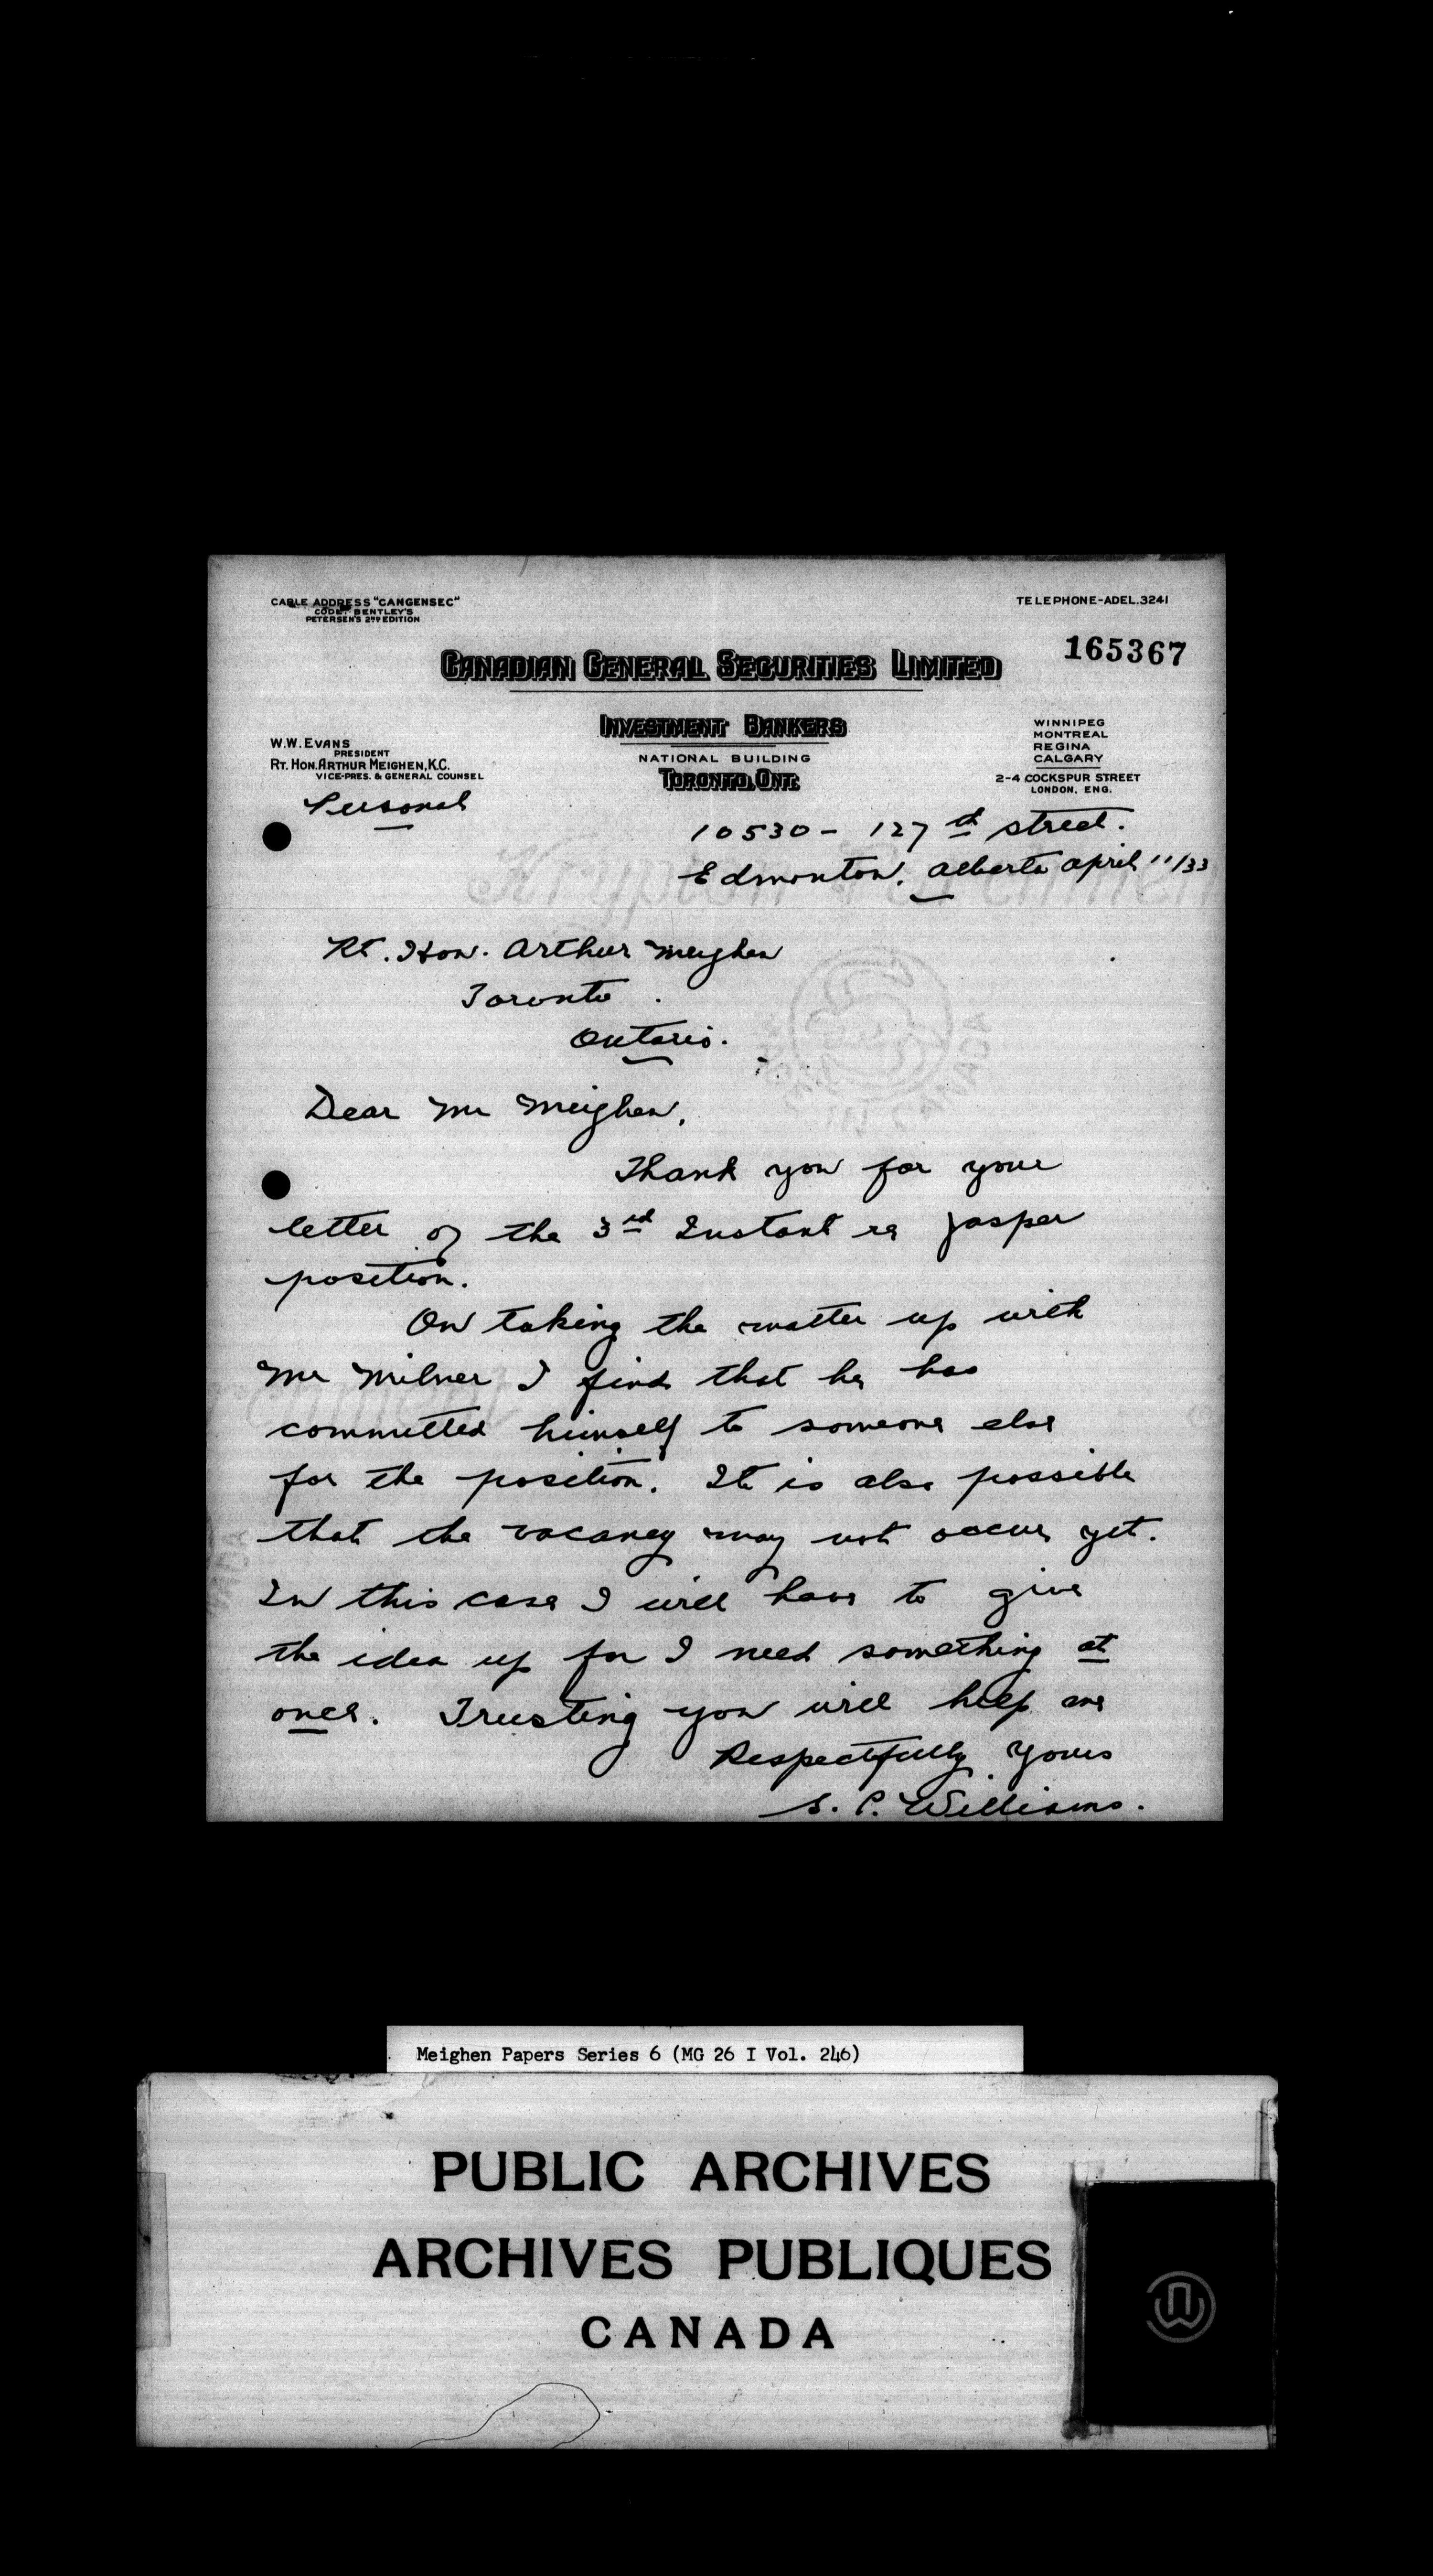 CABLE ADDRESS "CANGENSEC"
CODE: BENTLEY'S
PETERSEN'S 2ND EDITION
TELEPHONE-ADEL.3241
165367
CANADIAN GENERAL SECURITIES LIMITED
INVESTMENT BANKERS
NATIONAL BUILDING
TORONTO, ONT.
W.W. EVANS
PRESIDENT
RT. HON. ARTHUR MEIGHEN, K.C.
VICE-PRES. & GENERAL COUNSEL
WINNIPEG
MONTREAL
REGINA
CALGARY
2-4 COCKSPUR STREET
LONDON, ENG.
Personal
10530 - 127th street.
Edmonton, Alberta April 11/33
Krypton Parchment
Rt. Hon. Arthur Meighen
Toronto.
Ontario.
Dear Mr Meighen,
Thank you for your
letter of the 3rd Instant re Jasper
position.
On taking the matter up with
Mr Milner I find that he has
committed himself to someone else
for the position. It is also possible
that the vacancy may not occur yet.
In this case I will have to give
the idea up for I need something at
once. Trusting you will help me
Respectfully Yours
S. P. Williams.
Meighen Papers Series 6 (MG 26 I Vol. 246)
PUBLIC ARCHIVES
ARCHIVES PUBLIQUES
CANADA